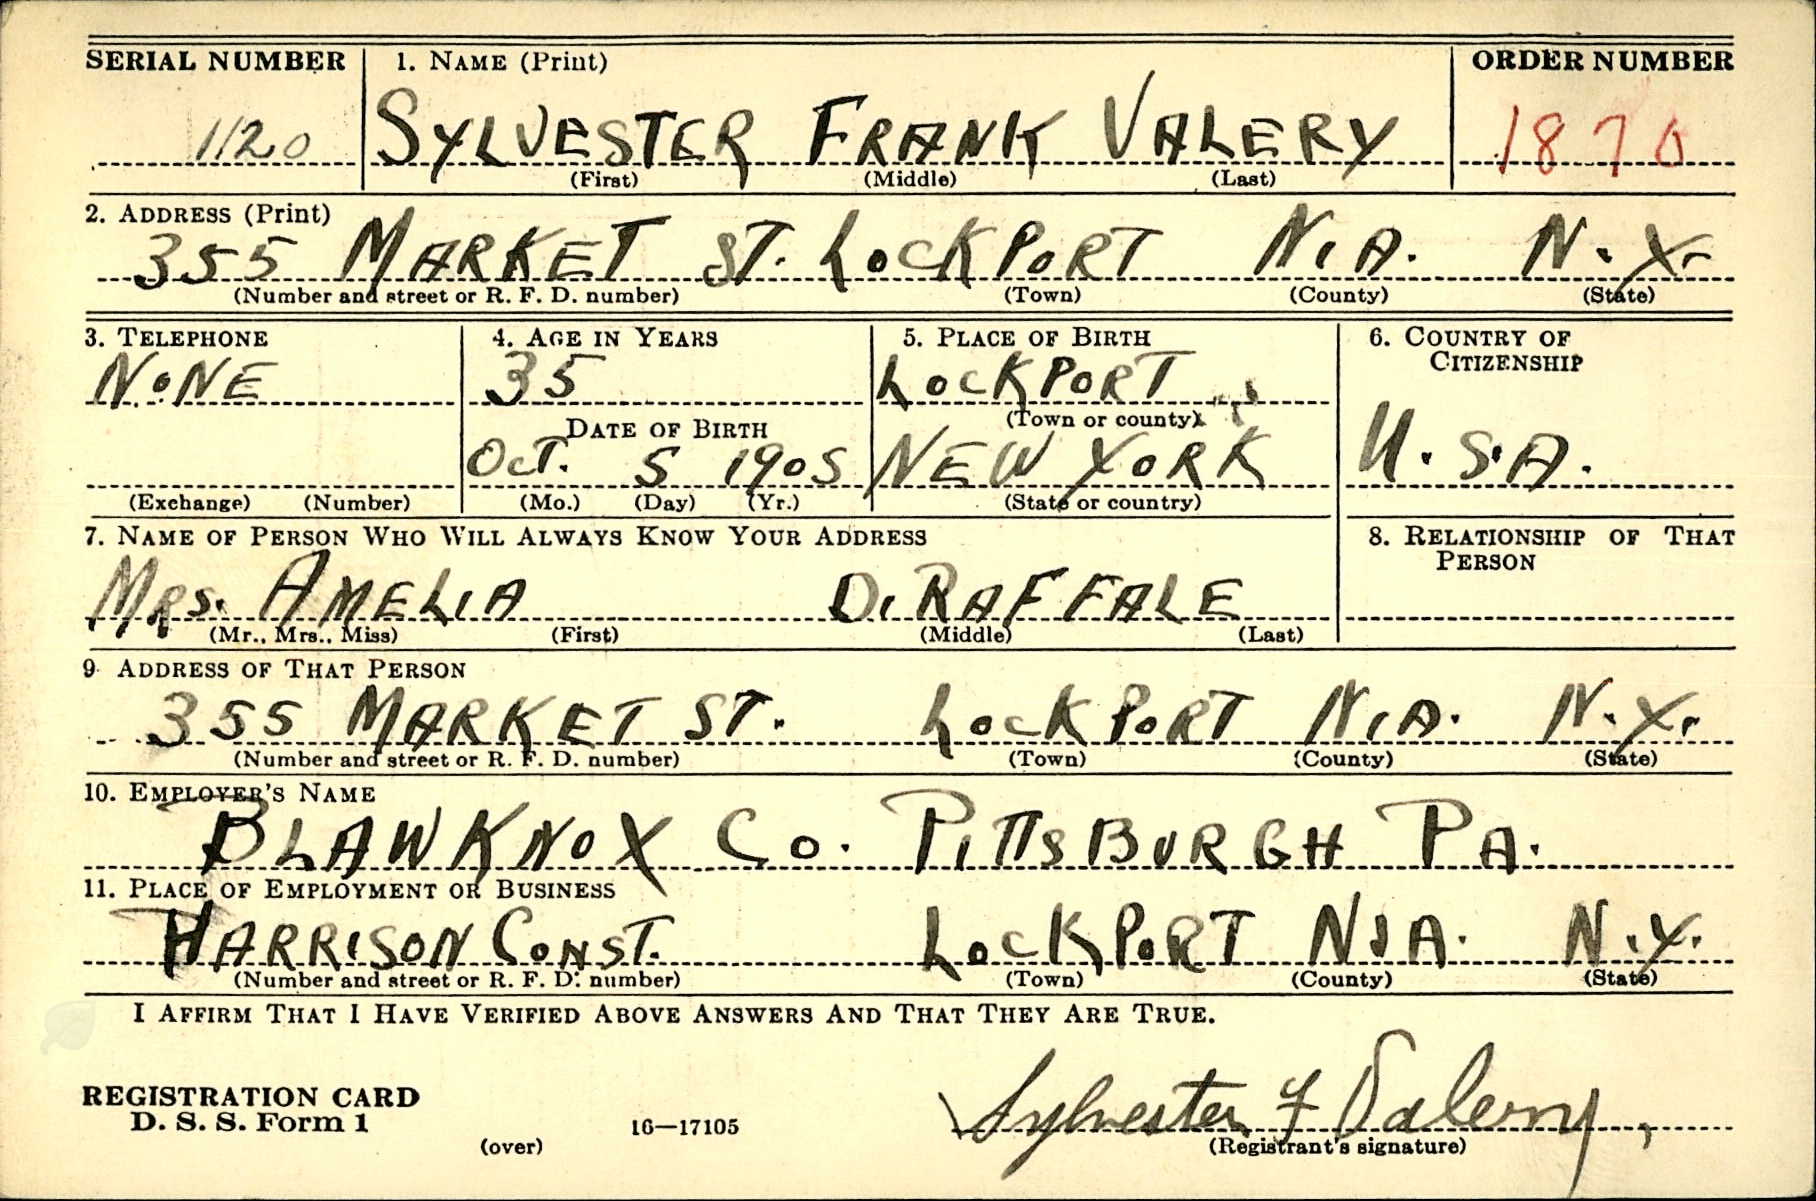 SERIAL NUMBER 1. NAME (Print) ORDER NUMBER
1120 SYLVESTER FRANK VALERY 1870
(First) (Middle) (Last)
2. ADDRESS (Print)
355 MARKET ST. LOCKPORT NIA. N.Y.
(Number and street or R. F. D. number) (Town) (County) (State)
3. TELEPHONE 4. AGE IN YEARS 5. PLACE OF BIRTH 6. COUNTRY OF CITIZENSHIP
NONE 35 LOCKPORT
DATE OF BIRTH (Town or county)
OCT. 5 1905 NEW YORK U.S.A.
(Exchange) (Number) (Mo.) (Day) (Yr.) (State or country)
7. NAME OF PERSON WHO WILL ALWAYS KNOW YOUR ADDRESS 8. RELATIONSHIP OF THAT PERSON
MRS. AMELIA DIRAFFALE
(Mr., Mrs., Miss) (First) (Middle) (Last)
9 ADDRESS OF THAT PERSON
355 MARKET ST. LOCKPORT NIA. N.Y.
(Number and street or R. F. D. number) (Town) (County) (State)
10. EMPLOYER'S NAME
BLAWKNOX CO. PITTSBURGH PA.
11. PLACE OF EMPLOYMENT OR BUSINESS
HARRISON CONST. LOCKPORT NIA. N.Y.
(Number and street or R. F. D. number) (Town) (County) (State)
I AFFIRM THAT I HAVE VERIFIED ABOVE ANSWERS AND THAT THEY ARE TRUE.
Sylvester F Valery
REGISTRATION CARD
D. S. S. Form 1 16—17105
(over) (Registrant's signature)